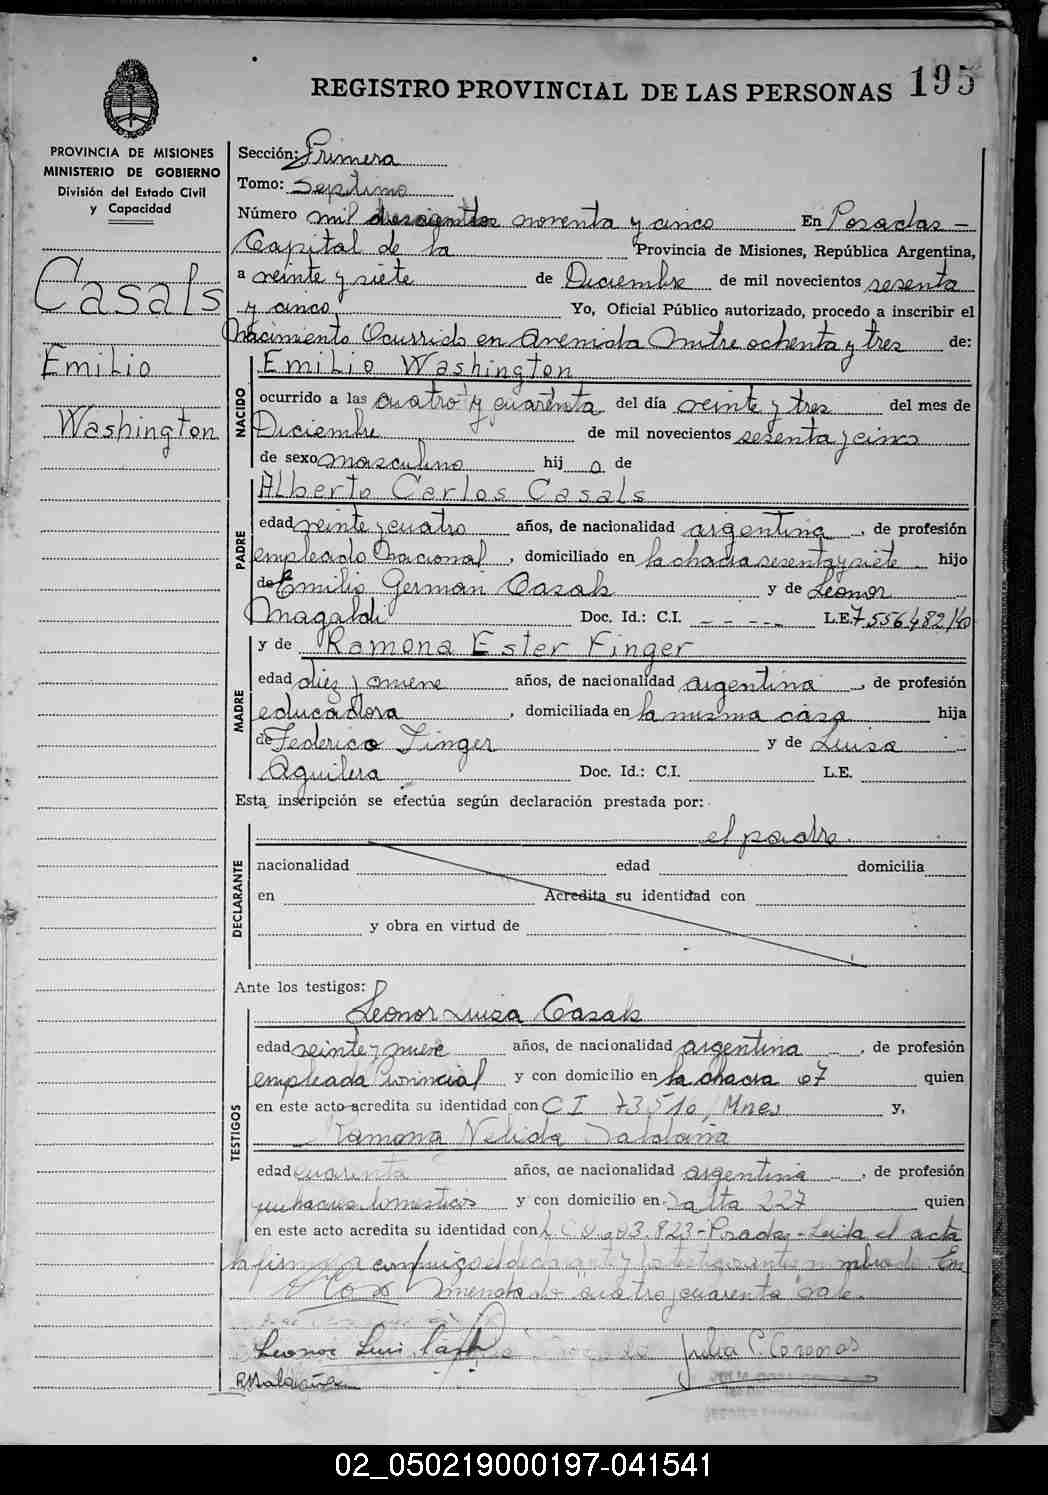 REGISTRO PROVINCIAL DE LAS PERSONAS 195
PROVINCIA DE MISIONES
MINISTERIO DE GOBIERNO
División del Estado Civil
y Capacidad
Casals
Emilio
Washington
Sección: Primera
Tomo: Septimo
Número mil doscientos noventa y cinco En Posadas -
Capital de la Provincia de Misiones, República Argentina,
a veinte y siete de Diciembre de mil novecientos sesenta
y cinco Yo, Oficial Público autorizado, procedo a inscribir el
Nacimiento Ocurrido en Avenida Mitre ochenta y tres de:
NACIDO
Emilio Washington
ocurrido a las cuatro y cuarenta del día veinte y tres del mes de
Diciembre de mil novecientos sesenta y cinco
de sexo masculino hij o de
PADRE
Alberto Carlos Casals
edad veinte y cuatro años, de nacionalidad argentina, de profesión
empleado Nacional, domiciliado en la chacra sesenta y siete hijo
de Emilio German Casals y de Leonor
Magaldi Doc. Id.: C.I. - - - - L.E. 7556482
y de Ramona Ester Finger
MADRE
edad diez y nueve años, de nacionalidad argentina, de profesión
educadora, domiciliada en la misma casa hija
de Federico Finger y de Luisa
Aguilera Doc. Id.: C.I. L.E.
Esta inscripción se efectúa según declaración prestada por:
DECLARANTE
el padre.
nacionalidad edad domicilia
en Acredita su identidad con
y obra en virtud de
Ante los testigos:
TESTIGOS
Leonor Luisa Casals
edad veinte y nueve años, de nacionalidad argentina, de profesión
empleada Provincial y con domicilio en la chacra 67 quien
en este acto acredita su identidad con C I 73.510, Mnes y,
Ramona Nelida
edad cuarenta años, de nacionalidad argentina, de profesión
quehaceres domesticos y con domicilio en Salta 227 quien
en este acto acredita su identidad con 823 - Posadas - Leida el acta
la firman conmigo el declarante y los testigos antes nombrado. En
Enmendado cuatro y cuarenta Vale.
Leonor Luisa Casals Julia C. Coronas
02_050219000197-041541